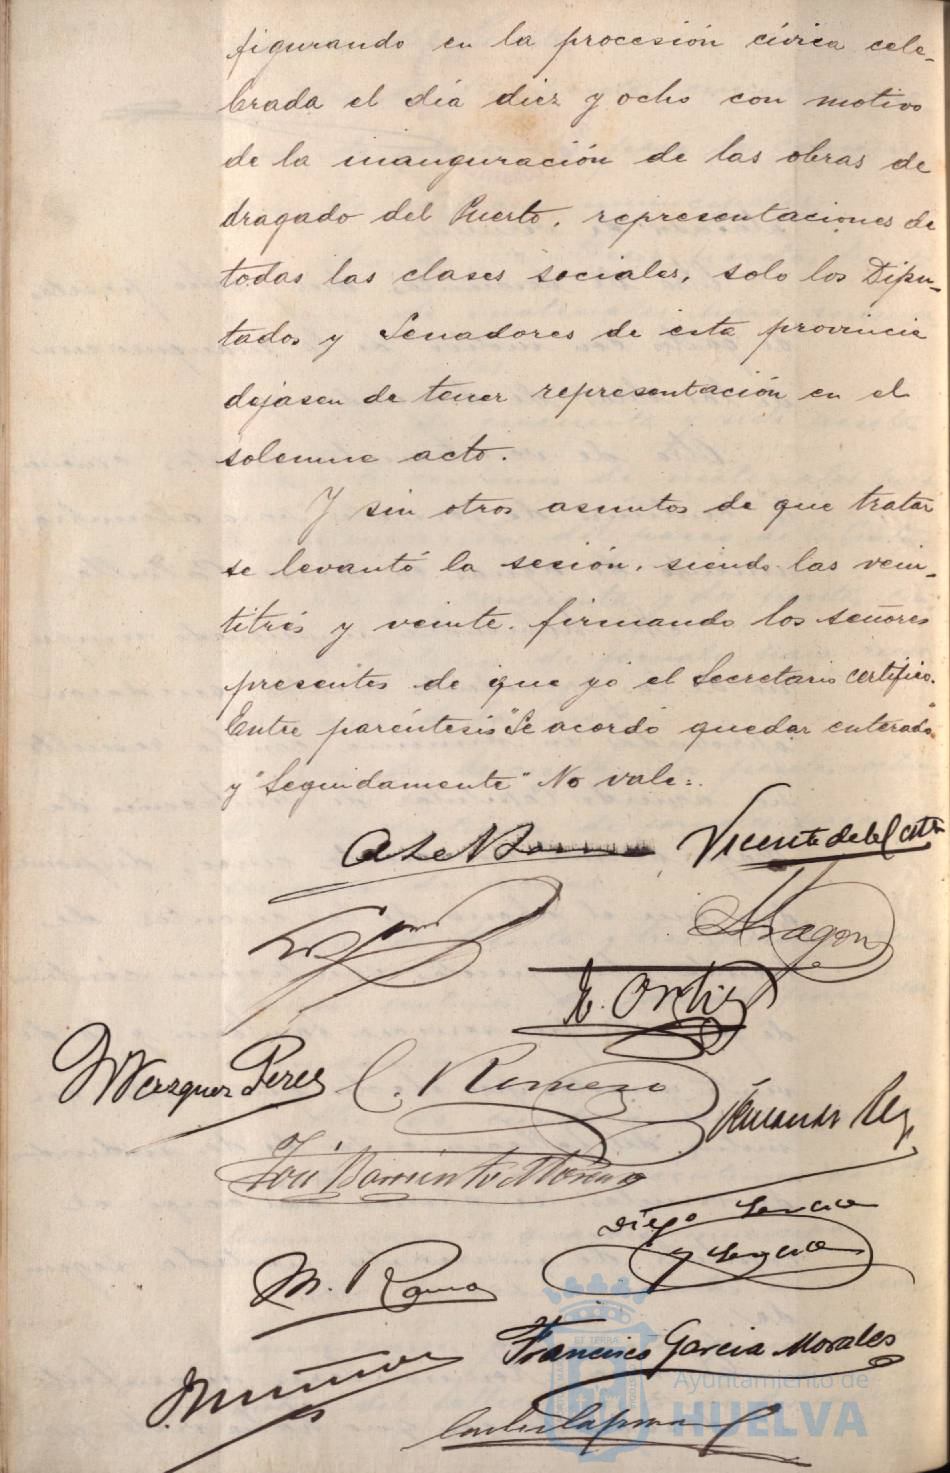 figurando en la procesión cívica cele-
brada el día diez y ocho con motivo
de la inauguración de las obras de
dragado del Puerto, representaciones de
todas las clases sociales, solo los Dipu-
tados y Senadores de esta provincia
dejasen de tener representación en el
solemne acto.
Y sin otros asuntos de que tratar
se levantó la sesión, siendo las vein-
titrés y veinte, firmando los señores
presentes de que yo el Secretario certifico.
Entre paréntesis "Se acordó quedar enterado"
y "Seguidamente" No vale=.
Vicente de la
Aragon
E. Ortiz
M Vazquez Perez
C. Romero
Fernando Rey
José Barriento Moreno
Diego
y
M. Roma
Francisco Garcia Morales
ET TERRÆ
Ayuntamiento de
HUELVA